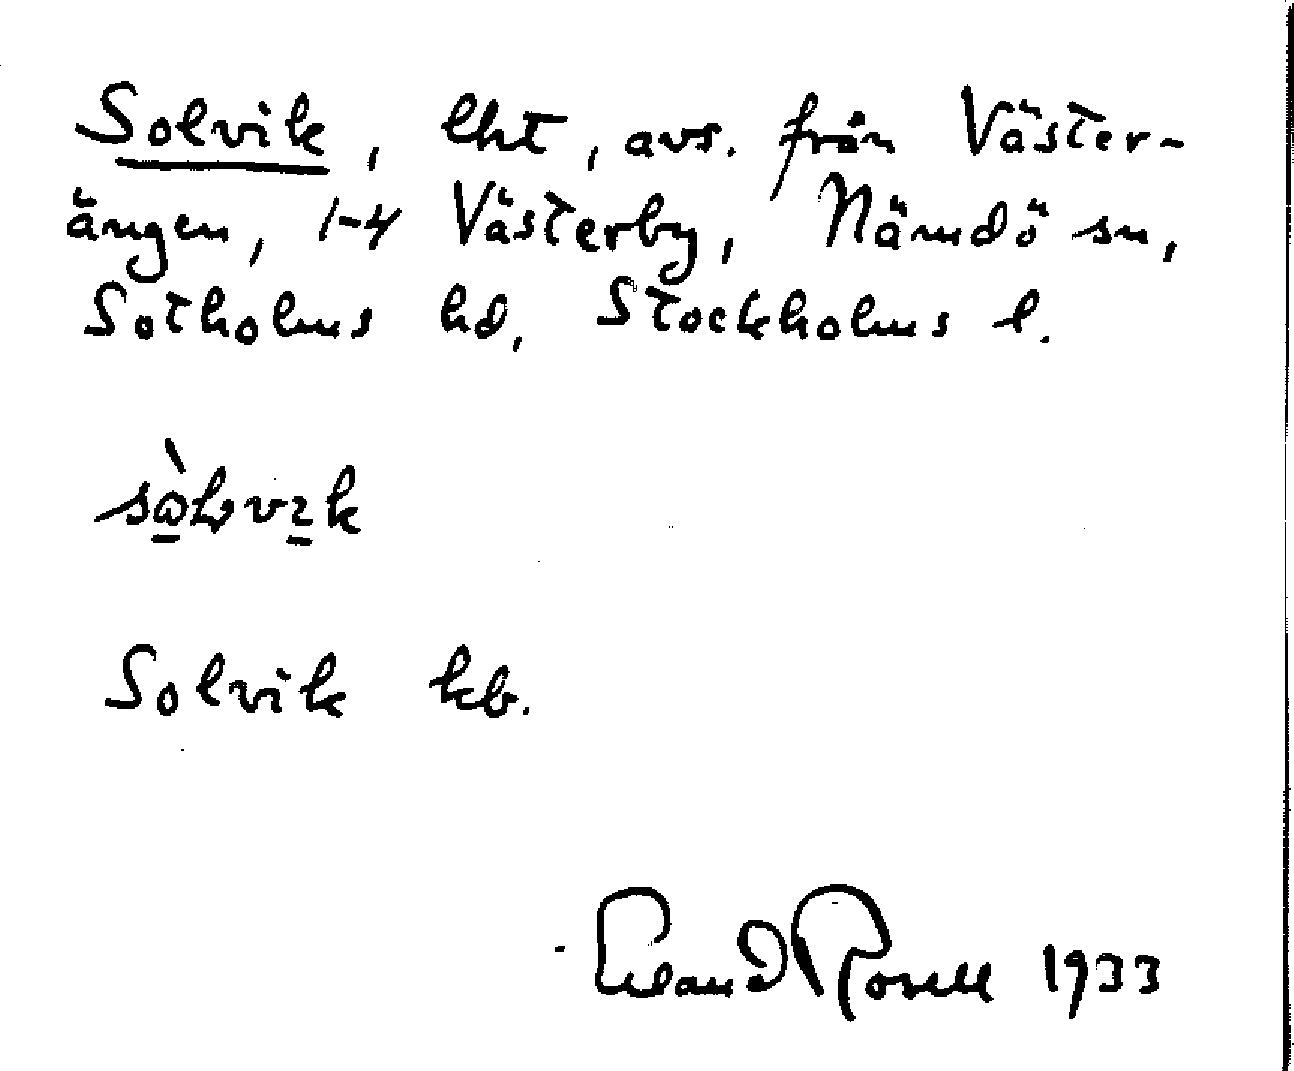 Solvik, lht, avs. från Väster-
ängen, 1-4 Västerby, Nämdö sn,
Sotholms hd, Stockholms l.
Solvik kb.
Erland Rosell 1933